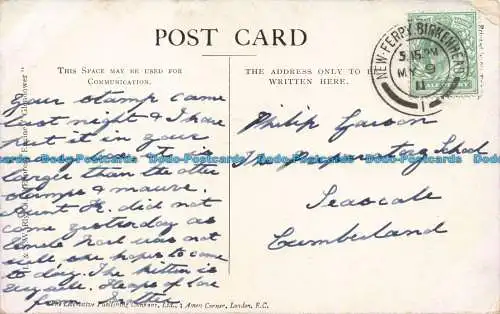 POST CARD
THIS SPACE MAY BE USED FOR
COMMUNICATION.
THE ADDRESS ONLY TO BE
WRITTEN HERE.
NEW-FERRY. BIRKENHEAD
5.15 PM
MY 9
11
1
Your stamp came
last night & I have
put it in your
larger than the other
stamps & mauve.
Aunt K. did not
come yesterday as
Uncle was not
well, she hopes to come
to day. The kitten is
Heaps of love
from
Philip
The Preparatory School
Seascale
Cumberland
Publishing Company, Ltd., 3 Amen Corner, London, E.C.
Dodo-Postcards